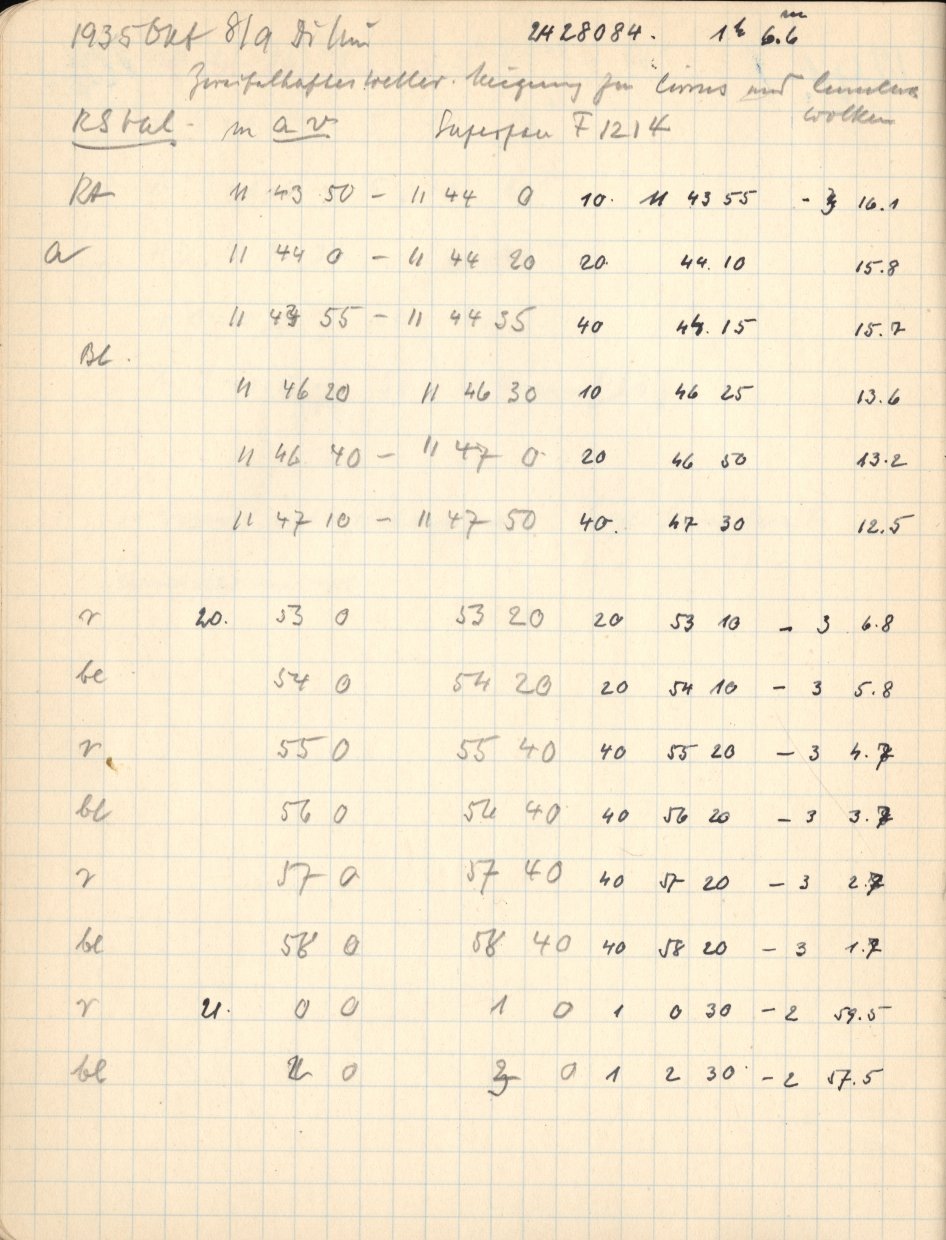 1935 Okt 8/9 Di/Mi 2428084. 1h 6.6m
Zweifelhaftes Wetter. Neigung zu Cirrus und Cumulus
wolken
RS Vul. m a v Superpan F 1214
Rt 11 43 50 - 11 44 0 10. 11 43 55 - 3 16.1
a 11 44 0 - 11 44 20 20. 44. 10 15.8
11 43 55 - 11 44 35 40 44. 15 15.7
Bl.
11 46 20 11 46 30 10 46 25 13.6
11 46 40 - 11 47 0 20 46 50 13.2
11 47 10 - 11 47 50 40. 47 30 12.5
r 20. 53 0 53 20 20 53 10 - 3 6.8
bl 54 0 54 20 20 54 10 - 3 5.8
r 55 0 55 40 40 55 20 - 3 4.7
bl 56 0 56 40 40 56 20 - 3 3.7
r 57 0 57 40 40 57 20 - 3 2.7
bl 58 0 58 40 40 58 20 - 3 1.7
r 21. 0 0 1 0 1 0 30 - 2 59.5
bl 2 0 3 0 1 2 30 - 2 57.5